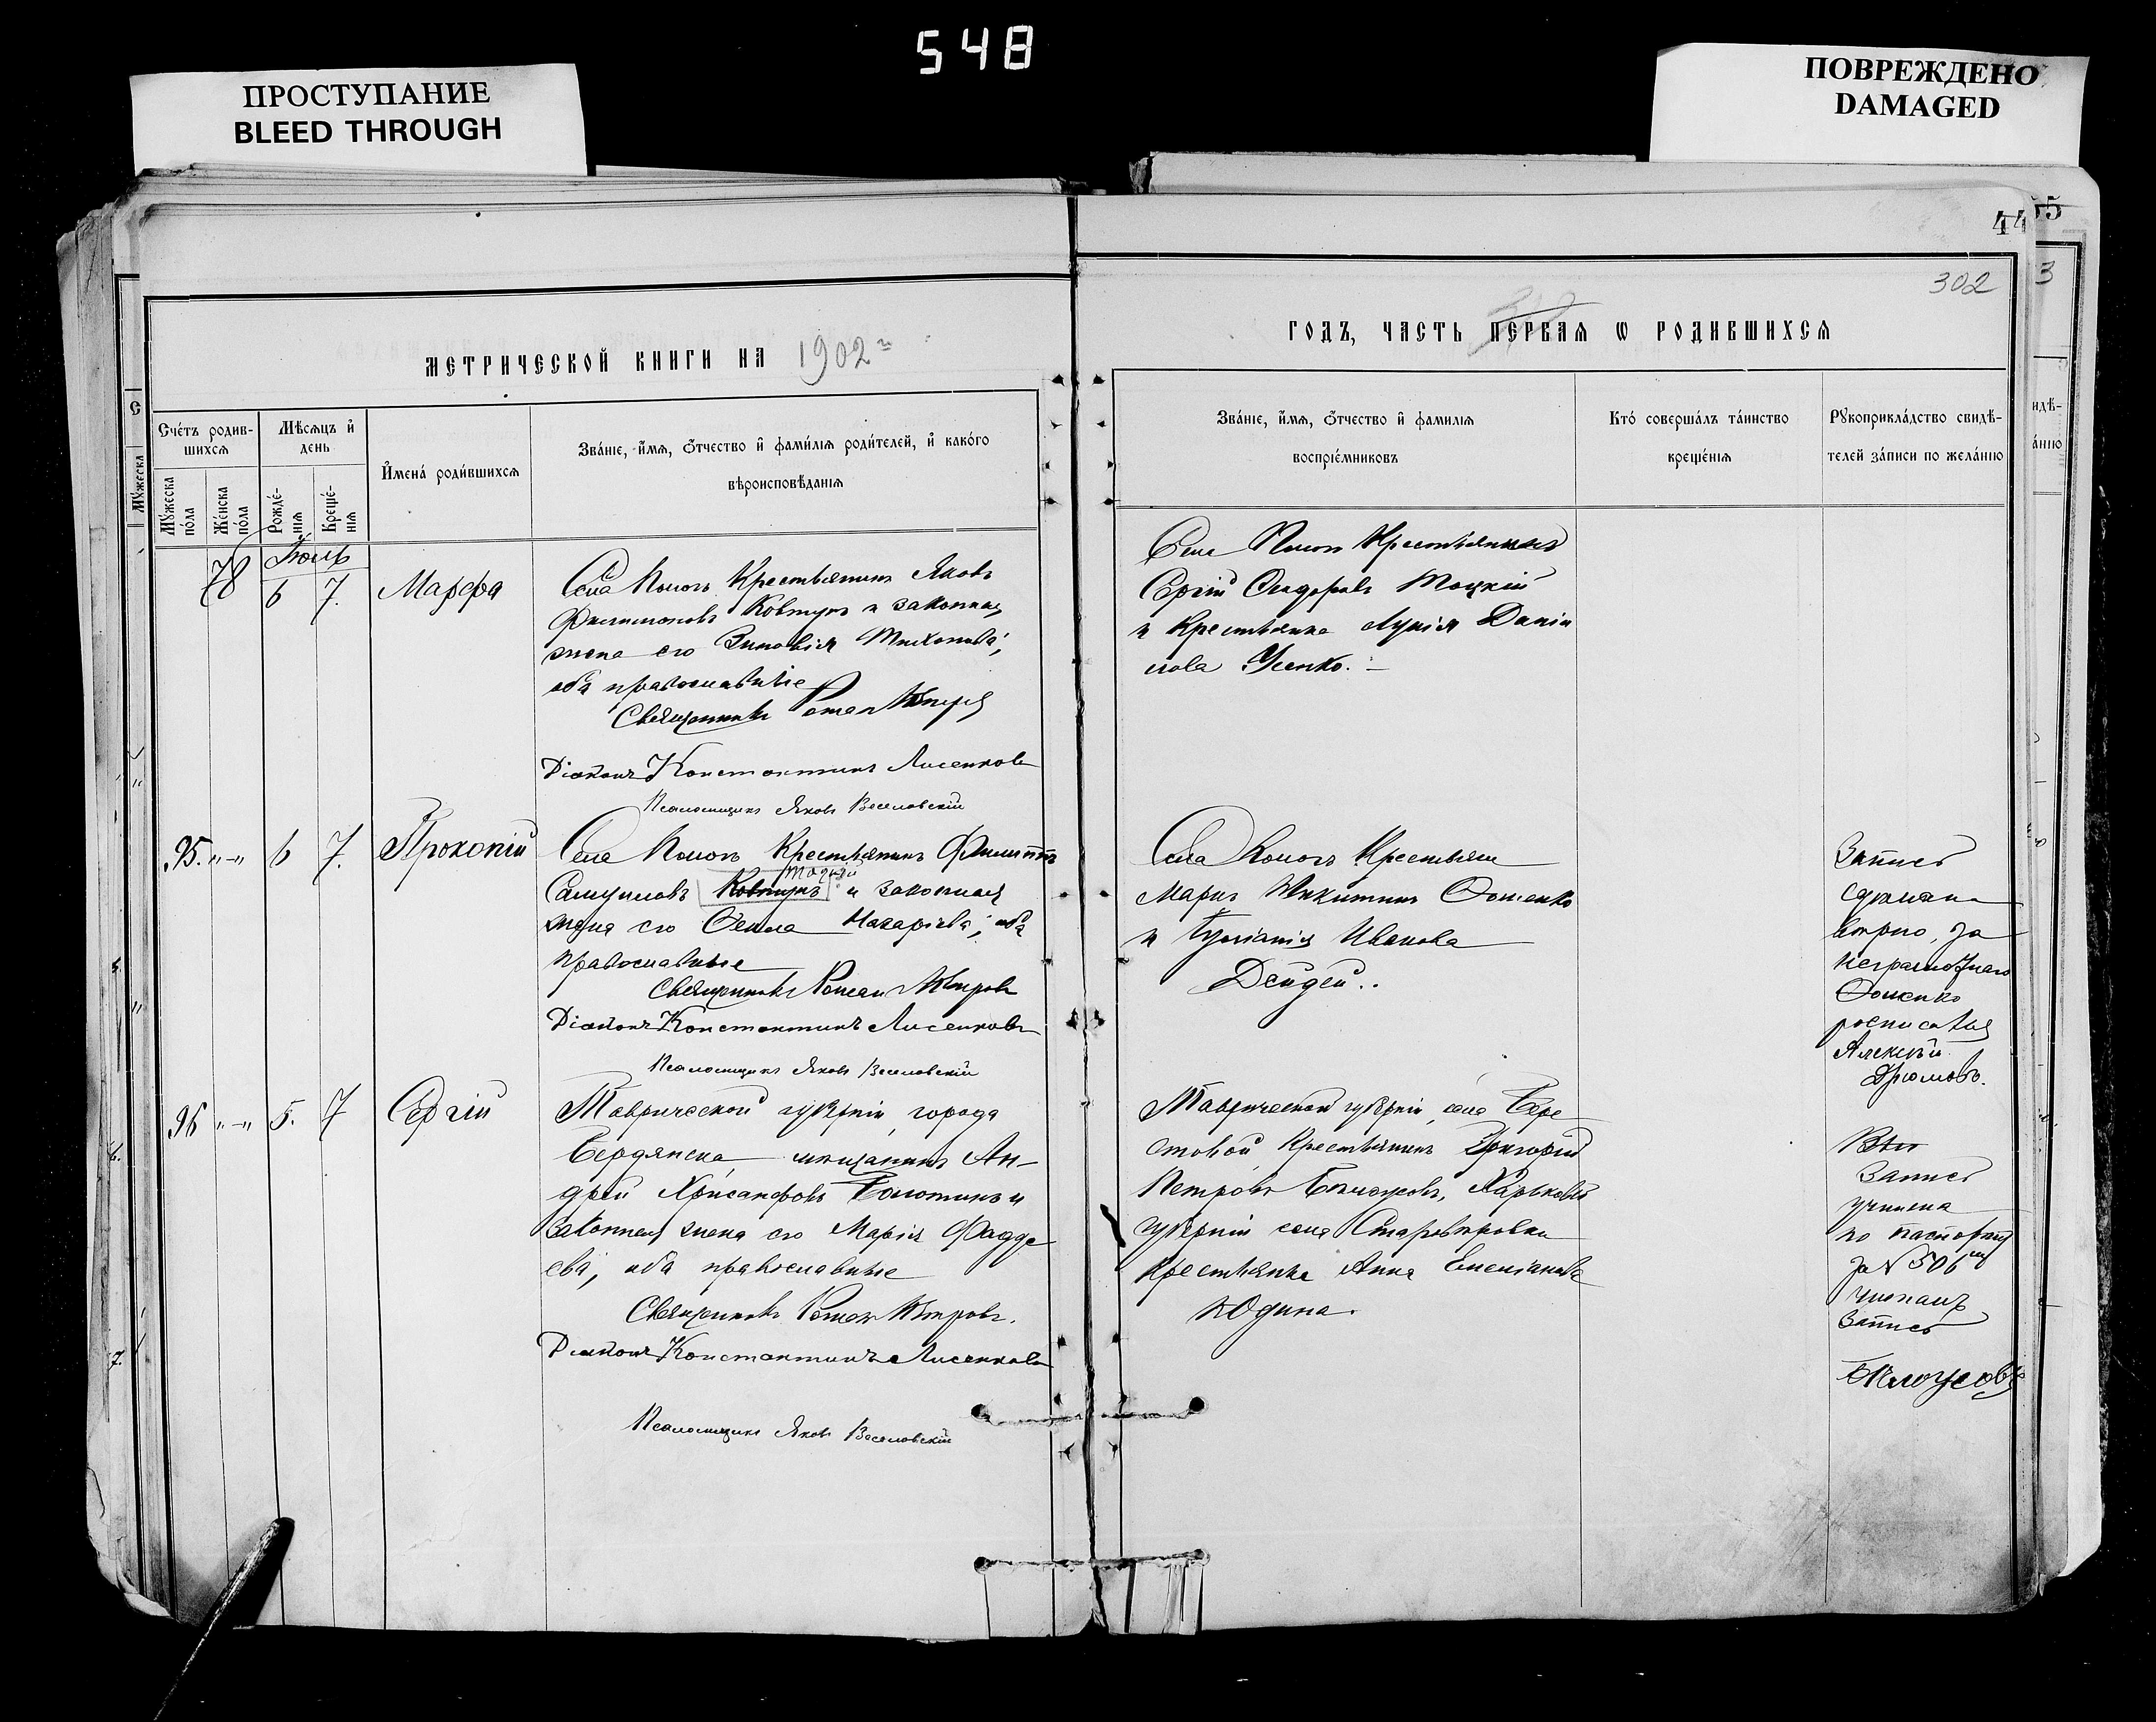 548
ПРОСТУПАНИЕ
BLEED THROUGH
ПОВРЕЖДЕНО
DAMAGED
44
55
302
3
МЕТРИЧЕСКОЙ КНИГИ НА 1902
ГОДЪ, ЧАСТЬ ПЕРВАЯ Ѡ РОДИВШИХСЯ
Счетъ родив-
шихся
Мѣсяцъ и
день
Мужеска
пола
Женска
пола
Рожде-
нія
Креще-
нія
Имена родившихся
Званіе, имя, отчество и фамилія родителей, и какого
вѣроисповѣданія
Званіе, имя, отчество и фамилія
воспріемниковъ
Кто совершалъ таинство
крещенія
Рукоприкладство свидѣ-
телей записи по желанію
Іюль
78 6 7. Марфа
Села Крестьянинъ Яковъ
Филимоновъ Ковтунъ и законная
жена его Зиновія Тихонова,
оба православные
Священникъ Роман Петровъ
Діаконъ Константинъ Лисенковъ
Псаломщикъ Яковъ Веселовскій
Села Крестьянинъ
Сергій Сидоровъ Тоцкій
и Крестьянка Лукія Даніи
лова Усенко.
95. 6 7. Прокопій
Села Крестьянинъ Филиппъ
Самуиловъ Ковтунъ и законная
жена его Макаріева, оба
православные
Священникъ Роман Петровъ
Діаконъ Константинъ Лисенковъ
Псаломщикъ Яковъ Веселовскій
Села Крестьяне
Марк Никитинъ Фоменко
и Іуліанія Иванова
Дейдей..
Запись
сдѣлана
вѣрно, за
неграмотнаго
Фоменко
росписался
Алексѣй
96 5. 7 Сергій
Таврической губерніи, города
Бердянска, мѣщанинъ Ан-
дрей Хрисанфовъ Болотинъ и
законная жена его Марія Фадде
ева, оба православные
Священникъ Роман Петровъ.
Діаконъ Константинъ Лисенковъ
Псаломщикъ Яковъ Веселовскій
Таврической губерніи, села Бере
стовой Крестьянинъ Григорій
Петровъ Бѣлоусовъ, Харьковс
губерніи села Старовѣровки
Крестьянка Анна Емеліанова
Юдина.
Запись
учинена
по паспорту
за № 506
читалъ
Запись
Бѣлоусовъ